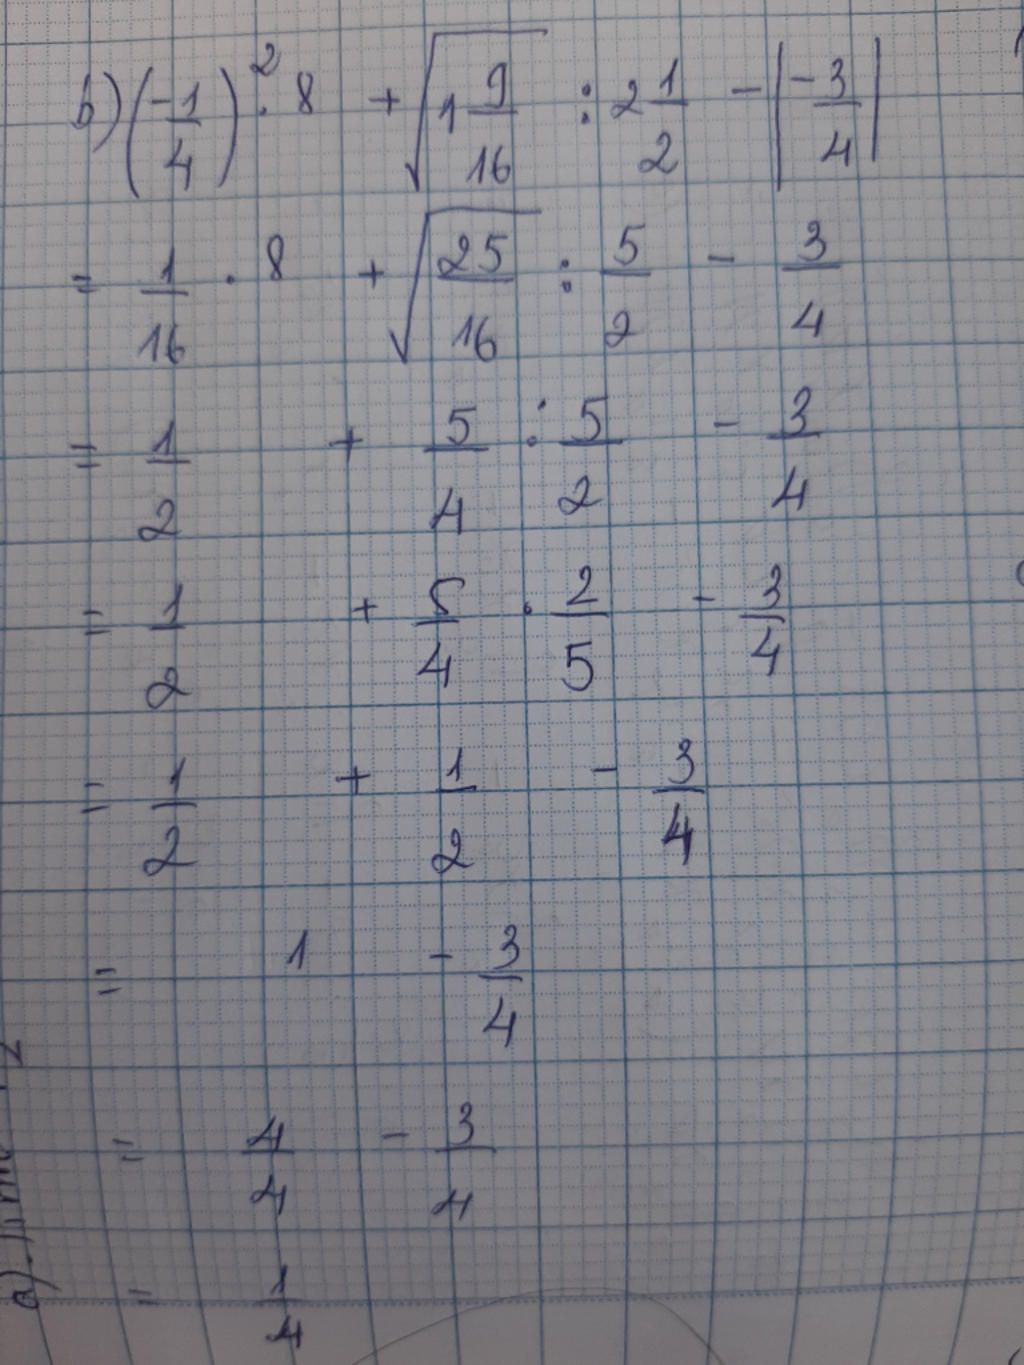 b) (-1/4)² . 8 + √(1 9/16) : 2 1/2 - |-3/4|
= 1/16 . 8 + √(25/16) : 5/2 - 3/4
= 1/2 + 5/4 : 5/2 - 3/4
= 1/2 + 5/4 . 2/5 - 3/4
= 1/2 + 1/2 - 3/4
= 1 - 3/4
= 4/4 - 3/4
= 1/4